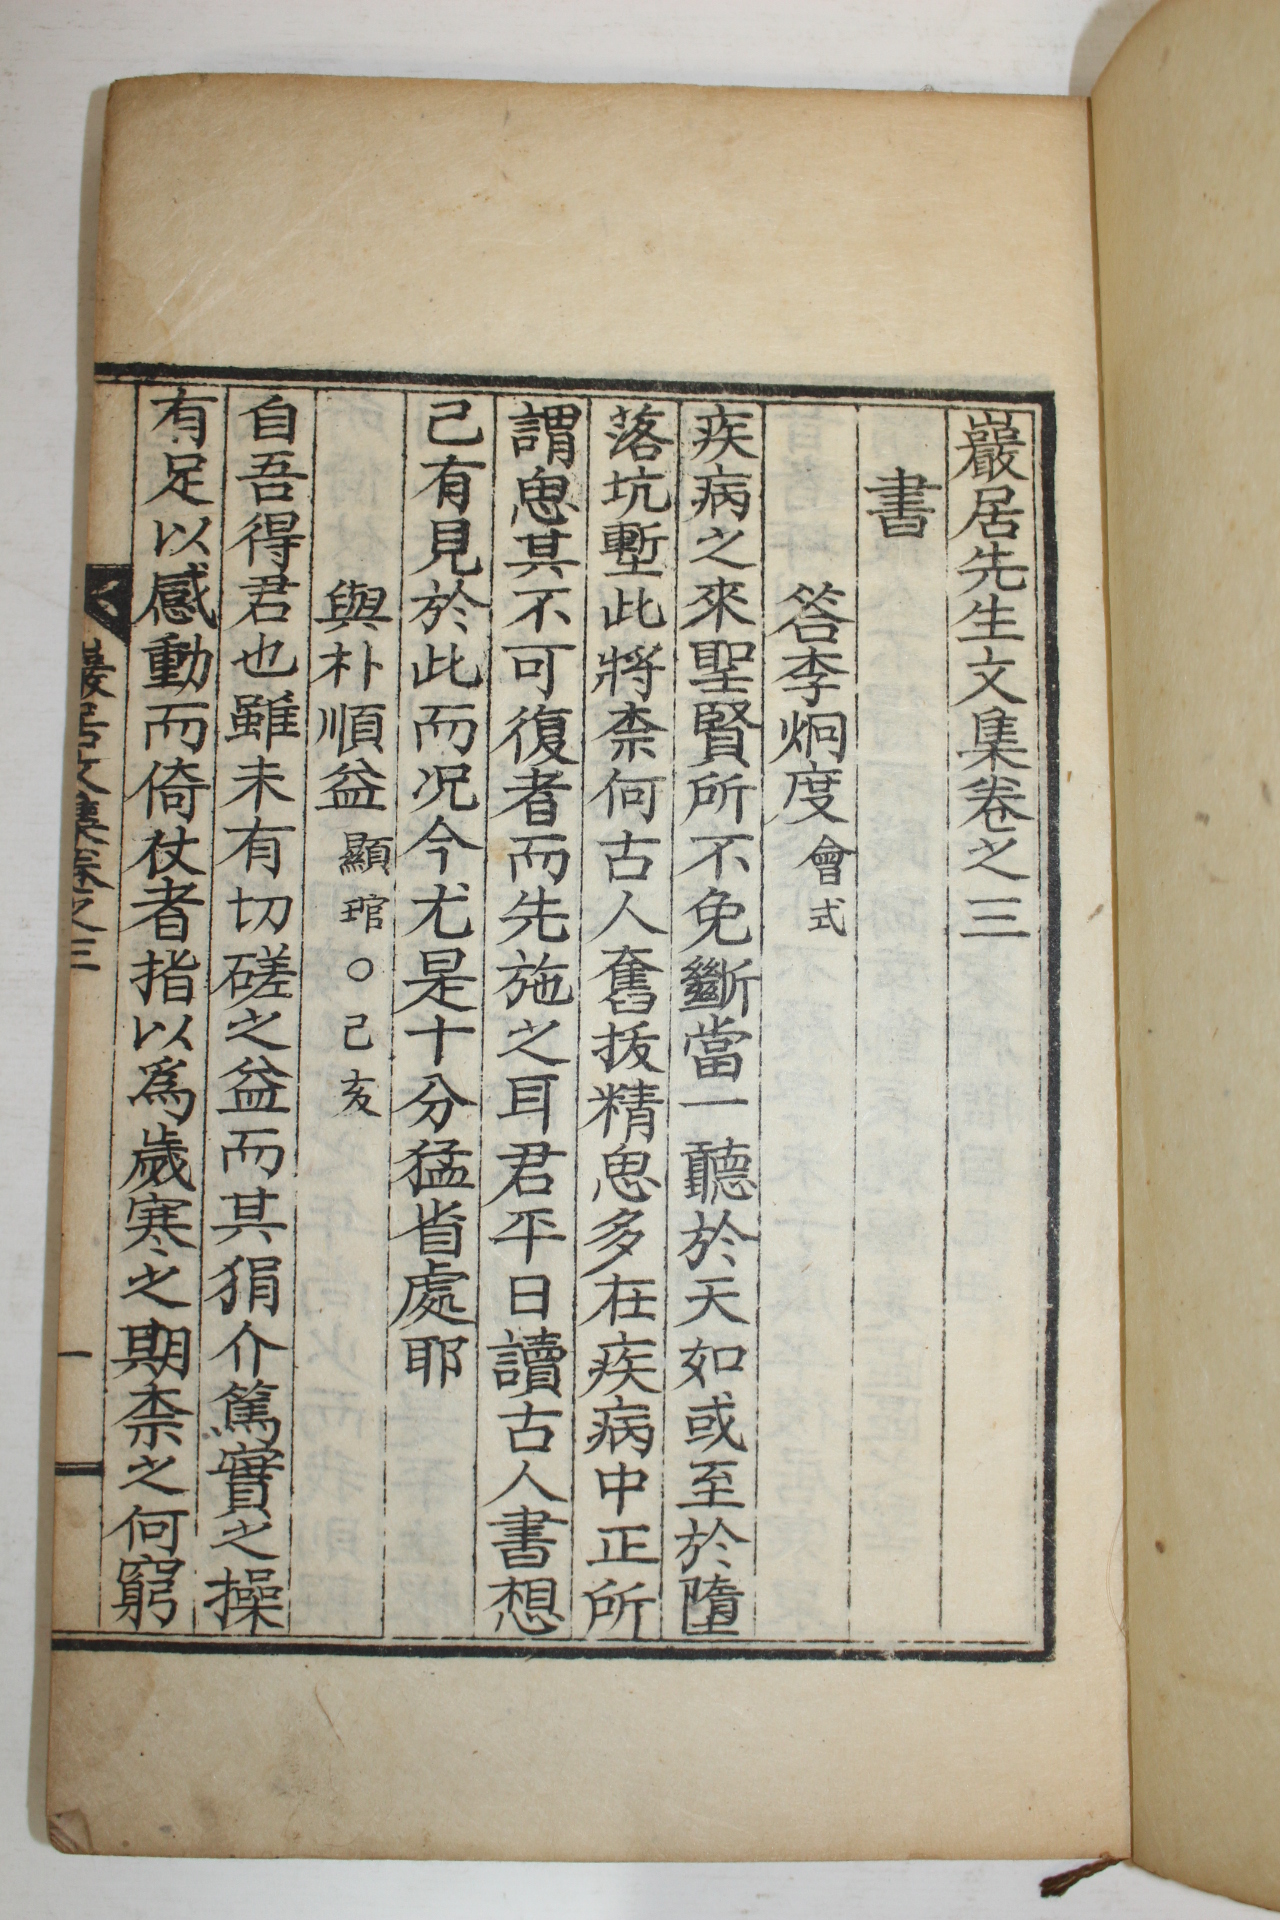 巖居先生文集卷之三
書
答李炯度會式
疾病之來聖賢所不免斷當一聽於天如或至於墮
落坑塹此將柰何古人奮拔精思多在疾病中正所
謂思其不可復者而先施之耳君平日讀古人書想
己有見於此而况今尤是十分猛省處耶
與朴順益顯琯○己亥
自吾得君也雖未有切磋之益而其狷介篤實之操
有足以感動而倚仗者指以爲歲寒之期柰之何窮
巖居文集卷之三 一